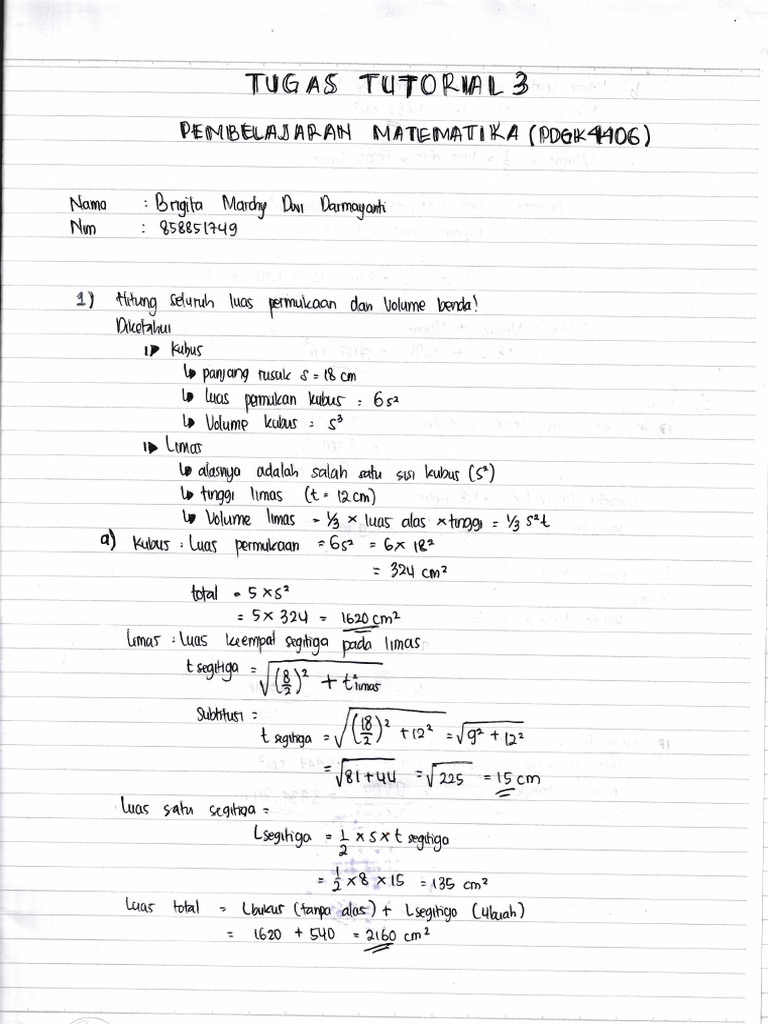 TUGAS TUTORIAL 3
PEMBELAJARAN MATEMATIKA (PDGK4406)
Nama : Brigita Mardhy Dwi Darmayanti
Nim : 858851749
1) Hitung seluruh luas permukaan dan Volume benda!
Diketahui
1) Kubus
↳ panjang rusuk s = 18 cm
↳ luas permukan kubus : 6s²
↳ Volume kubus : s³
1) Limas
↳ alasnya adalah salah satu sisi kubus (s²)
↳ tinggi limas (t = 12 cm)
↳ Volume limas = 1/3 × luas alas × tinggi = 1/3 s²t
a) Kubus : Luas permukaan = 6s² = 6 × 18²
= 324 cm²
total = 5 × s²
= 5 × 324 = 1620 cm²
Limas : Luas keempat segitiga pada limas
t segitiga = √(8/2)² + t² limas
Subtitusi =
t segitiga = √(18/2)² + 12² = √9² + 12²
= √81 + 44 = √225 = 15 cm
Luas satu segitiga =
Lsegitiga = 1/2 × s × t segitiga
= 1/2 × 8 × 15 = 135 cm²
Luas total = Lbukus (tanpa alas) + Lsegitiga (4buah)
= 1620 + 540 = 2160 cm²